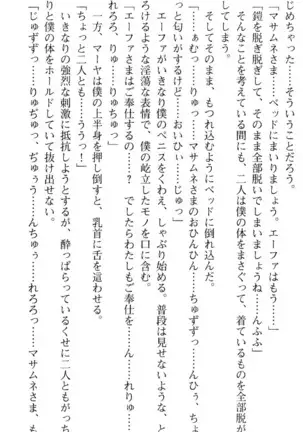 じめちゃった……そういうことだろう。
「マサムネさま……ベッドにまいりましょう。エーファはもう……」
「鎧を脱ぎ脱ぎして、そのまま全部脱いでしまいましょうね……んふふ」
そんなことを考えている間にも、二人は僕の体をまさぐって、着ているものを全部脱が
そしてそのまま、もつれ込むようにベッドに倒れ込んだ。
「……ちゅ……ぁむっ……りゅっ……マサムネさまのおひんひん……ちゅずずっ……んひぅ、ちょ
っと匂いがするけど……おいひぃ……じゅっ」
エーファがいきなり僕のペニスをくわえ、しゃぶり始める。普段は見せないような、と
ろけるような淫蕩な表情で、僕の屹立したモノを口に含む。
「エーファさまはご奉仕するの……? でしたらわたしもご奉仕を……ん……れりゅ……
れろろ、りゅちゅっ……」
一方、マーヤは僕の上半身を押し倒すと、乳首に舌を這わせる。
「ちょっと二人とも……ううっ!」
いきなりの強烈な刺激に抵抗しようとするが、酔っぱらっているくせに二人ともがっち
りと僕の体をホールドしていて抜け出せない。
「じゅずずっ……りゅぢゅっ、ぢゅぅう……んちゅぅ……れろろっ……マサムネさま、も